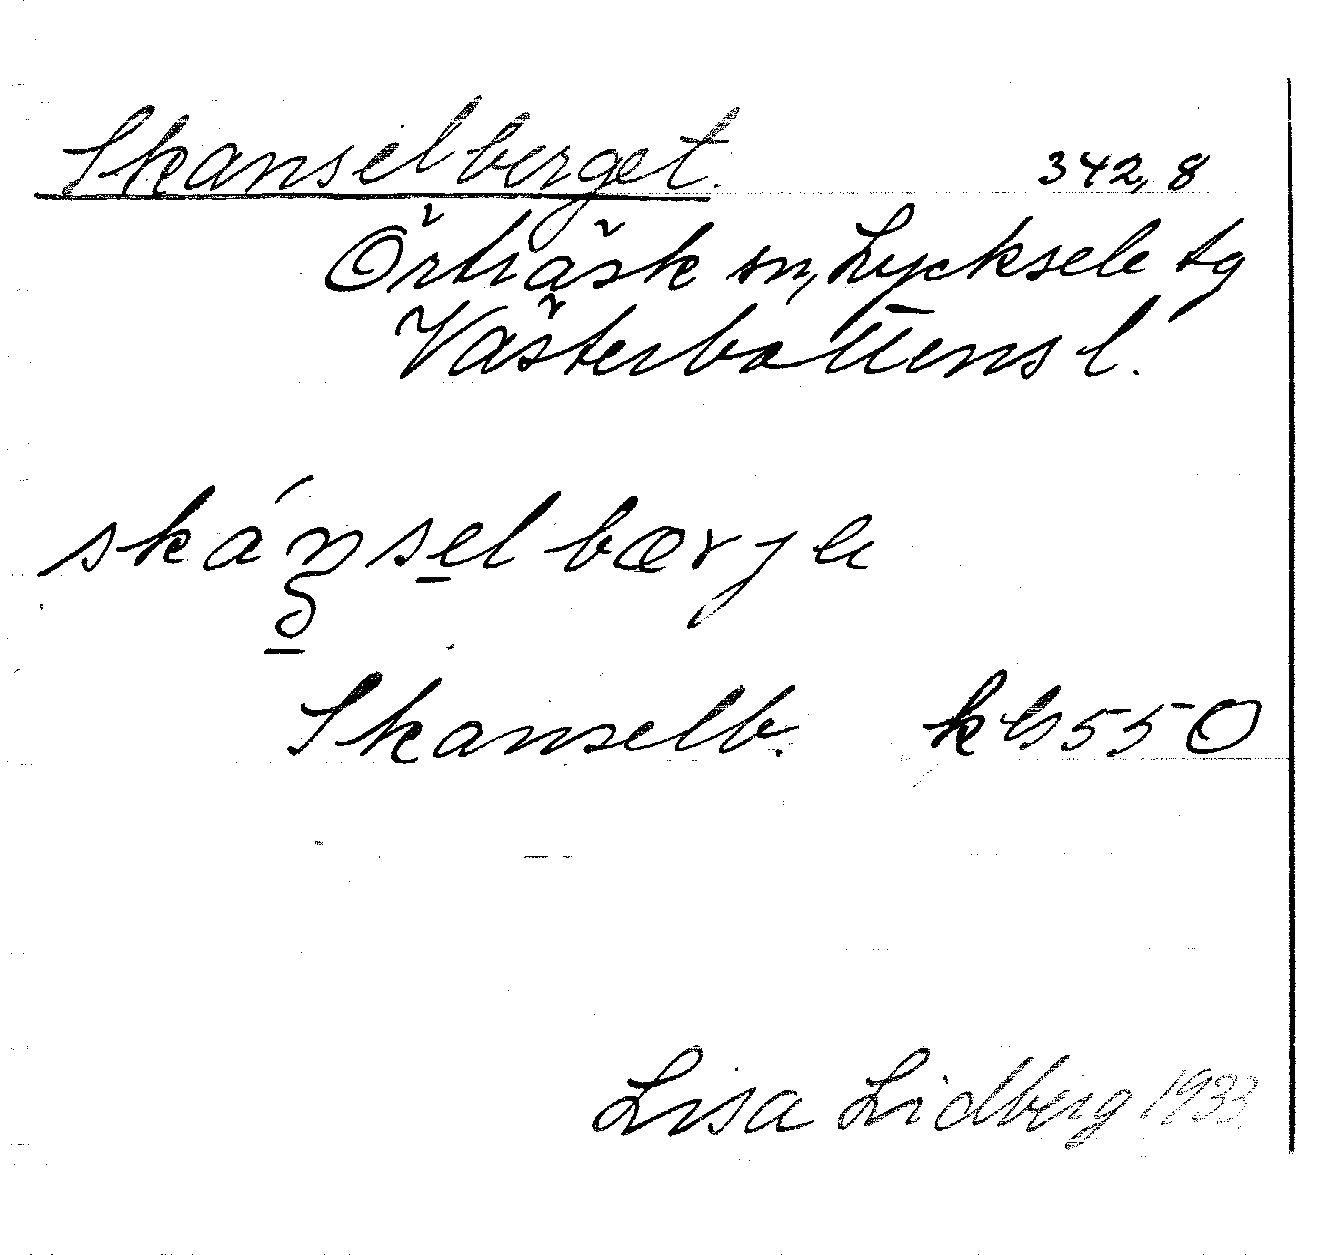 Skanselberget. 342,8
Örträsk sn, Lycksele tg
Västerbottens l.
skánsелbærje
Skanselb. kb 550
Lisa Lidberg 1933